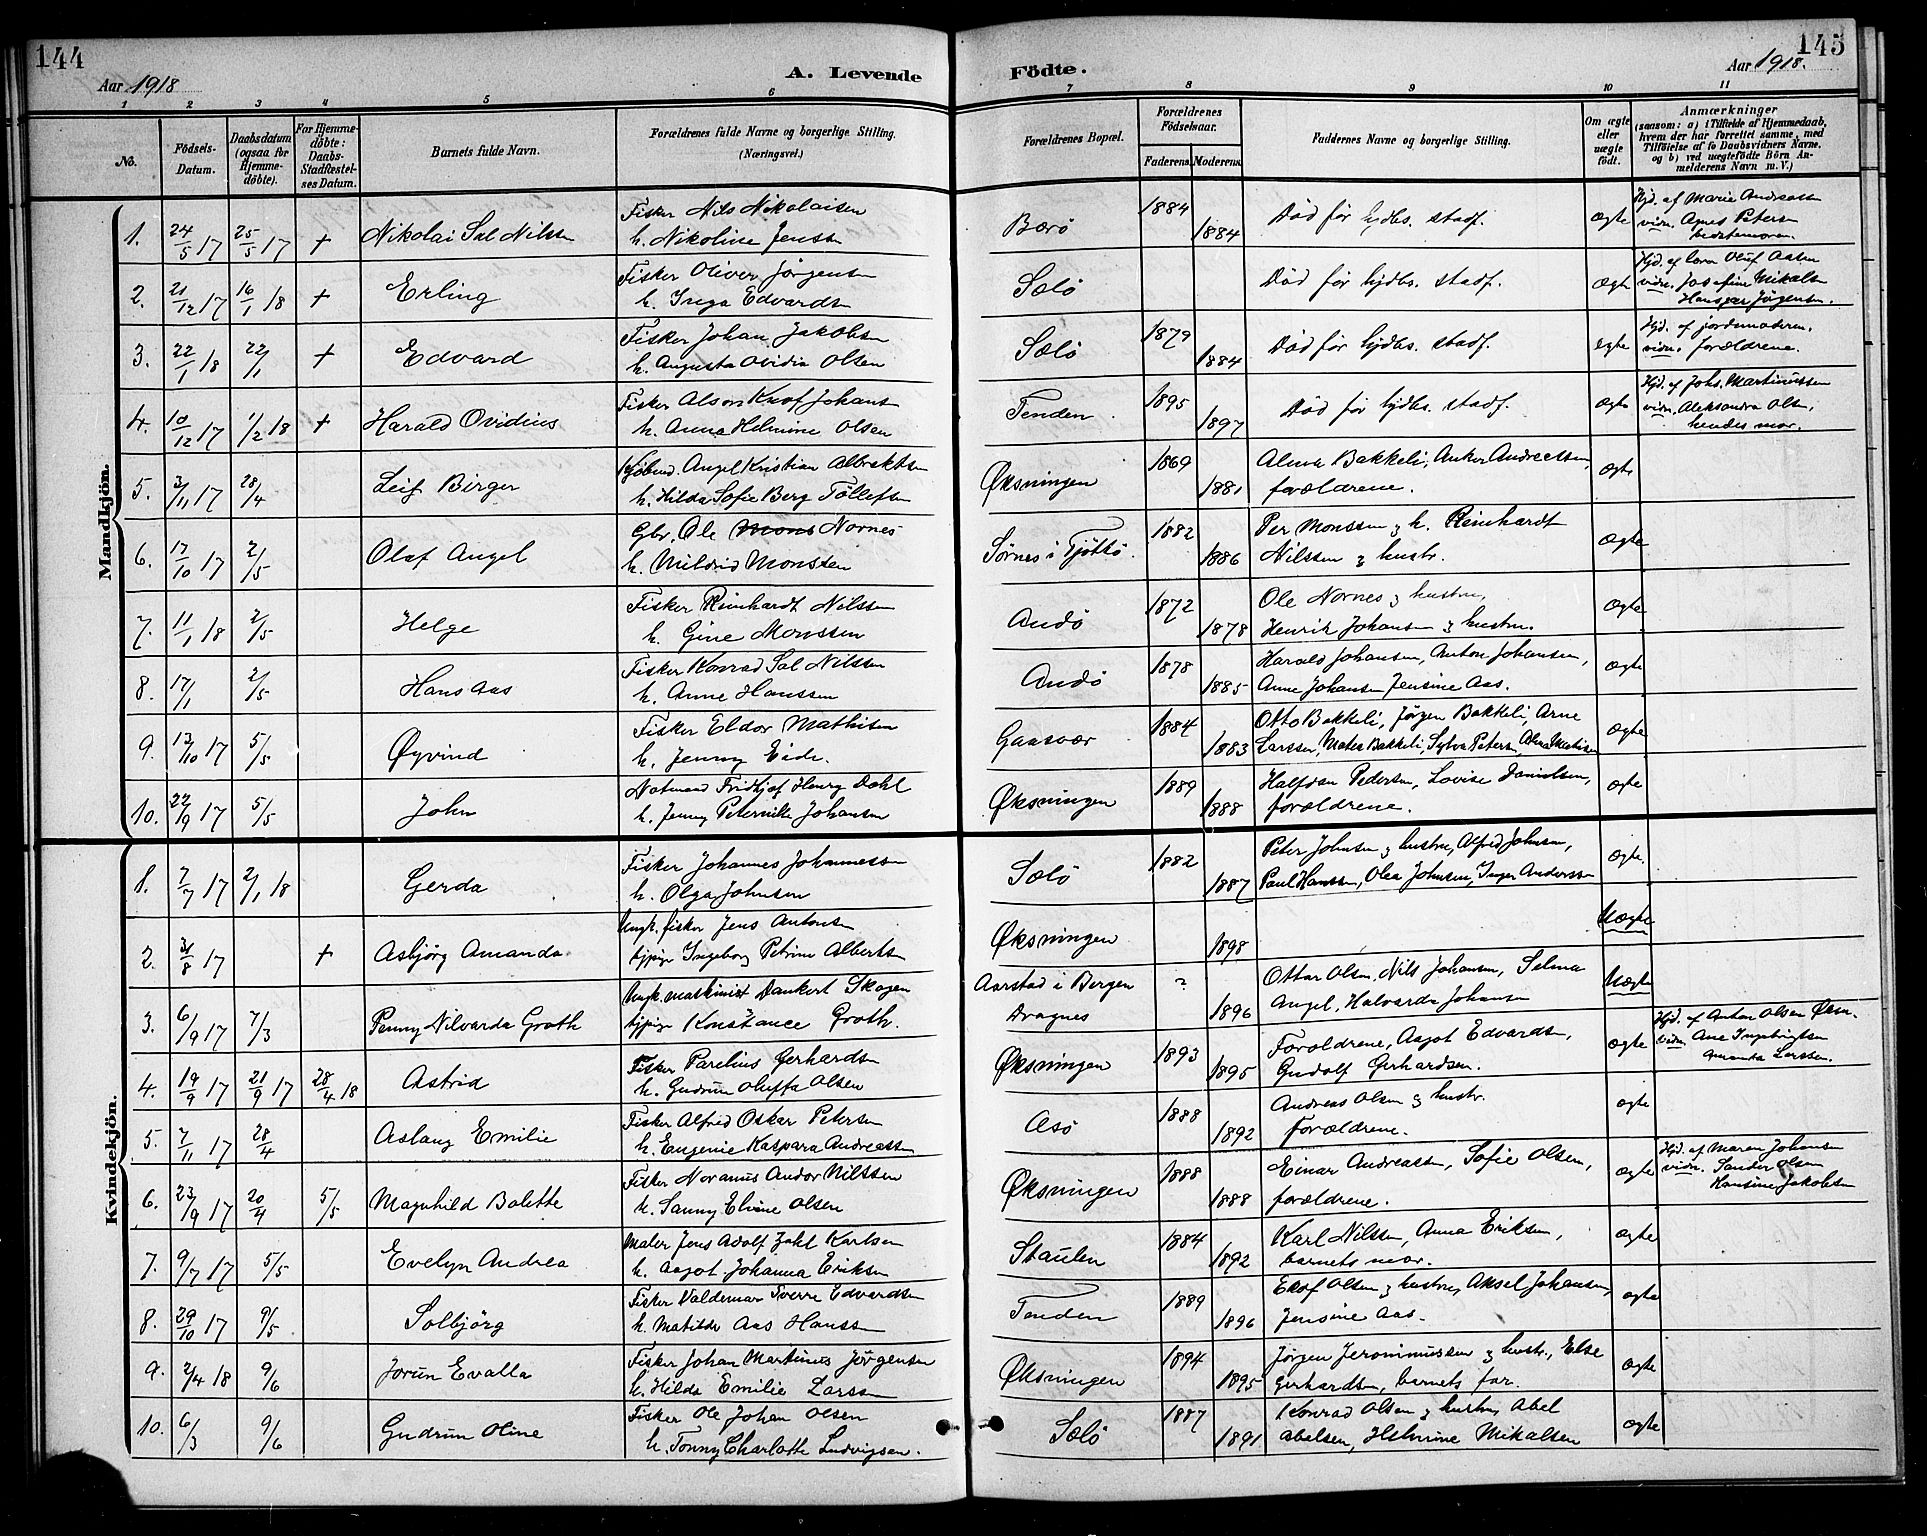 144
Aar 1918
A. Levende
1 2 3 4 5 6
No.
Födsels-Datum.
Daabsdatum (ogsaa for Hjemmedöbte).
For Hjemmedöbte: Daabs-Stadfæstelses Datum.
Barnets fulde Navn.
Forældrenes fulde Navne og borgerlige Stilling.
(Næringsvei.)
Mandkjön.
1. 24/5 17 25/5 17 + Nikolai Sal Nilssn
Fisker Nils Nikolaisen
h. Nikoline Jenssn
2. 21/12 17 16/1 18 + Erling
Fisker Oliver Jørgensn
h. Inga Edvardsn
3. 22/1 18 22/1 + Edvard
Fisker Johan Jakobsn
h. Augusta Ovidia Olsen
4. 10/12 17 1/2 18 + Harald Ovidius
Fisker Johansn
h. Anna Helmine Olsen
5. 3/11 17 28/4 Leif Birger
Angel Kristian Albrektsn
h. Hilda Sofie Berg Tøllefsn
6. 17/10 17 2/5 Olaf Angel
Gbr. Ole Mons Nornes
h. Mildrid Monssen
7. 11/1 18 2/5 Helge
Fisker Reinhardt Nilssn
h. Gine Monssen
8. 17/1 2/5 Hans Aas
Fisker Konrad Sal Nilssen
h. Anne Hanssen
9. 13/10 17 5/5 Øyvind
Fisker Eldor Mathisen
h. Jenny Eide.
10. 22/9 17 5/5 John
Notmand Fridtjof Henry Dahl
h. Jenny Peternille Johansn
Kvindekjön.
1. 7/7 17 2/1 18 Gerda
Fisker Johannes Johannessen
h. Olga Johnsen
2. 31/8 17 + Asbjörg Amanda
Ungk. fisker Jens Antonsn
tjpige Ingeborg Petrine Albertsn
3. 6/9 17 7/3 Penny Nilvarda Groth
Ungk. maskinist Dankert Skogen
tjpige Konstance Groth.
4. 19/9 17 21/9 17 28/4 18 Astrid
Fisker Parelius Gerhardsn
h. Gudrun Oluffa Olsen
5. 7/11 17 28/4 Aslaug Emilie
Fisker Alfred Oskar Petersn
h. Eugenie Kaspara Andreassn
6. 23/9 17 20/4 5/5 Magnhild Bolette
Fisker Noranus Andor Nilssen
h. Sanny Eline Olsen
7. 9/7 17 5/5 Evelyn Andrea
Maler Jens Adolf Karlsen
h. Aagot Johanna Eriksn
8. 29/10 17 9/5 Solbjörg
Fisker Valdemar Sverre Edvardsn
h. Matilde Aas Hanssn
9. 2/4 18 9/6 Jorun Evalla
Fisker Johan Martinus Jørgensn
h. Hilda Emilie Larssn
10. 6/3 9/6 Gudrun Oline
Fisker Ole Johan Olsen
h. Tonny Charlotte Ludvigsen.
145
Födte.
Aar 1918.
7 8 9 10 11
Forældrenes Bopæl.
Forældrenes Födselsaar.
Faderens. Moderens.
Faddernes Navne og borgerlige Stilling.
Om ægte eller uægte födt.
Anmærkninger
(saasom: a) i Tilfælde af Hjemmedaab,
hvem der har forrettet samme, med
Tilföielse af to Daabsvidners Navne,
og b) ved uægtefödte Börn Anmelderens Navn m. V.)
Borø 1884 1884 Død før hjdbs. stadf. ægte
Hjd. af Marie Andreassn
vidn. Agnes Petersn
bedstemoren.
Sølø Død før hjdbs. stadf. ægte
Hjd. af Oluf Aasen
vidn. Josefine Mikalsn
Jørgensen.
Sølø 1879 1884 Død før hjdbs. stadf. egte
Hjd. af jordmoderen.
vidn. forældrene.
Tenden 1895 1897 Død før hjdbs. stadf. ægte
Hjd. af Johs. Martinussen
vidn. Aleksandra Olsn,
hendes mor.
Øksningen 1869 1881 Alma Bakkeli, Anker Andreassen,
forældrene.
ægte
Sørnes i Tjøttø. 1882 1886 Per Monssen & h. Reinhardt
Nilssen & hustr.
Ægte
Andø 1872 1878 Ole Nornes & hustru,
Henrik Johansn & hustru.
Ægte
Andø 1878 1885 Harald Johansen, Anton Johansen,
Anne Johansen Jensine Aas.
ægte
Gaasvær 1884 1883 Otto Bakkeli, Jørgen Bakkeli, Arne
Larssen, Bakkeli, Sylva Petersn,
ægte
Øksningen 1889 1888 Halfdan Pedersn, Lovise Danielsen,
forældrene.
ægte
Sølø 1882 1887 Peter Johnsen & hustru, Alfred Johnsen,
Paul Hanssen, Olea Johnsen, Inger Anderssn
ægte
Øksningen 1898 Uægte
Aarstad i Bergen
Dragnes
? 1896 Ottar Olsen, Nils Johansen, Selma
Angel, Halvarda Johansn
Uægte
Øksningen 1893 1895 Forældrene, Aagot Edvardsn,
Gudolf Gerhardsen.
ægte
Hjd. af Anton Olsen Øksn.
vidn. Ane Ingebrigtsn
Amanda Larssen.
Asø 1888 1892 Andreas Olsen & hustr.
Forældrene.
ægte
Øksningen 1888 1888 Einar Andreassn, Sofie Olsen,
forældrene.
ægte
Hjd. af Maren Johansn
vidn. Sander Olsen
Hansine Jakobsen
Staulen 1884 1892 Karl Nilssen, Anna Eriksen,
barnets mor.
ægte
Tenden 1889 1896 Olsen & hustru, Aksel Johansen,
Jensine Aas.
ægte
Øksningen 1894 1895 Jørgen Jeronimussen & hustr., Else
Gerhardsen, barnets far.
Ægte
Sølø 1887 1891 Konrad Olsen & hustru, Abel
Abelsen, Helmine Mikalsen
ægte